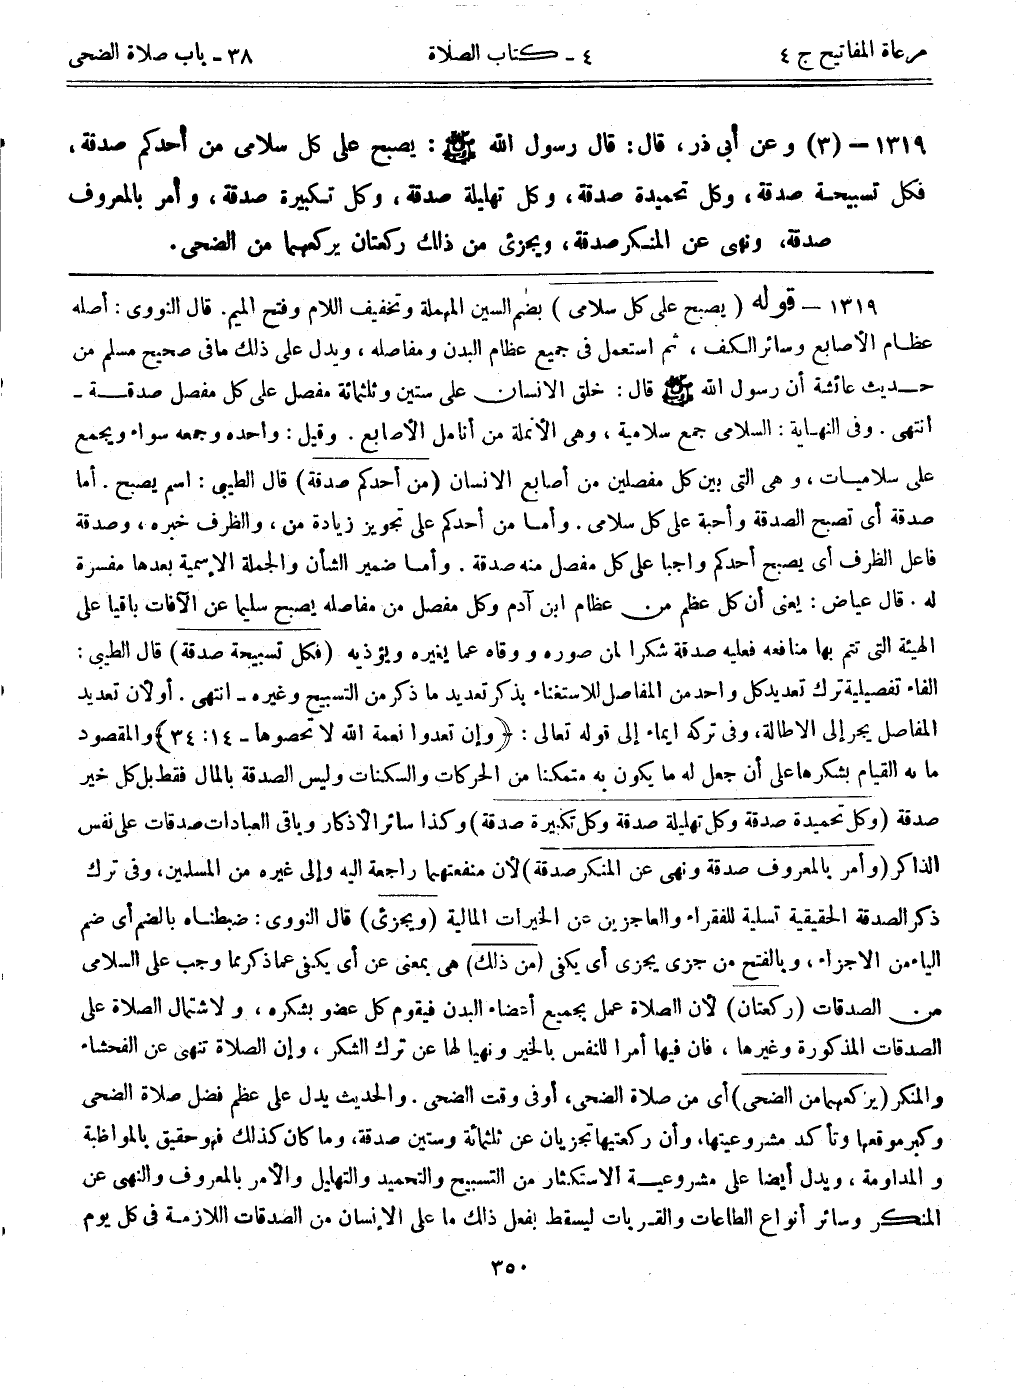 مرعاة المفاتيح ج ٤ ٤ ـ كتاب الصلاة ٣٨ ـ باب صلاة الضحى
١٣١٩ – (٣) وعن أبى ذر، قال: قال رسول الله ﷺ : يصبح على كل سلامى من أحدكم صدقة،
فكل تسبيحة صدقة، وكل تحميدة صدقة، وكل تهليلة صدقة، وكل تكبيرة صدقة، وأمر بالمعروف
صدقة، ونهى عن المنكر صدقة، ويجزئ من ذلك ركعتان يركعهما من الضحى.
١٣١٩ – قوله ( يصبح على كل سلامى ) بضم السين المهملة وتخفيف اللام وفتح الميم. قال النووى: أصله
عظام الأصابع وسائر الكف، ثم استعمل فى جميع عظام البدن ومفاصله، ويدل على ذلك مافى صحيح مسلم من
حديث عائشة أن رسول الله ﷺ قال: خلق الانسان على ستين وثلثمائة مفصل على كل مفصل صدقة ـ
انتهى. وفى النهاية: السلامى جمع سلامية، وهى الأنملة من أنامل الأصابع. وقيل: واحده وجمعه سواء ويجمع
على سلاميات، وهى التى بين كل مفصلين من أصابع الانسان (من أحدكم صدقة) قال الطيبى: اسم يصبح. أما
صدقة أى تصبح الصدقة واجبة على كل سلامى. وأما من أحدكم على تجويز زيادة من، والظرف خبره، وصدقة
فاعل الظرف أى يصبح أحدكم واجبا على كل مفصل منه صدقة. وأما ضمير الشأن والجملة الإسمية بعدها مفسرة
له. قال عياض: يعنى أن كل عظم من عظام ابن آدم وكل مفصل من مفاصله يصبح سليما عن الآفات باقيا على
الهيئة التى تتم بها منافعه فعليه صدقة شكرا لمن صوره ووقاه عما يغيره ويؤذيه (فكل تسبيحة صدقة) قال الطيبى:
الفاء تفصيلية ترك تعديد كل واحد من المفاصل للاستغناء بذكر تعديد ما ذكر من التسبيح وغيره ـ انتهى. أولأن تعديد
المفاصل يجر إلى الاطالة، وفى تركه ايماء إلى قوله تعالى: ﴿وإن تعدوا نعمة الله لا تحصوها ـ ١٤: ٣٤﴾ والمقصود
ما به القيام بشكرها على أن جعل له ما يكون به متمكنا من الحركات والسكنات وليس الصدقة بالمال فقط بل كل خير
صدقة (وكل تحميدة صدقة وكل تهليلة صدقة وكل تكبيرة صدقة) وكذا سائر الأذكار وباقى العبادات صدقات على نفس
الذاكر (وأمر بالمعروف صدقة ونهى عن المنكر صدقة) لأن منفعتهما راجعة اليه وإلى غيره من المسلمين، وفى ترك
ذكر الصدقة الحقيقية تسلية للفقراء والعاجزين عن الخيرات المالية (ويجزئ) قال النووى: ضبطناه بالضم أى ضم
الياء من الاجزاء، وبالفتح من جزى يجزى أى يكفى (من ذلك) هى بمعنى عن أى يكفى عما ذكر مما وجب على السلامى
من الصدقات (ركعتان) لأن الصلاة عمل بجميع أعضاء البدن فيقوم كل عضو بشكره، ولاشتمال الصلاة على
الصدقات المذكورة وغيرها، فان فيها أمرا للنفس بالخير ونهيا لها عن ترك الشكر، وإن الصلاة تنهى عن الفحشاء
والمنكر (يركعهما من الضحى) أى من صلاة الضحى، أو فى وقت الضحى. والحديث يدل على عظم فضل صلاة الضحى
وكبر موقعها وتأكد مشروعيتها، وأن ركعتيها تجزيان عن ثلثمائة وستين صدقة، وما كان كذلك فهو حقيق بالمواظبة
والمداومة، ويدل أيضا على مشروعية الاستكثار من التسبيح والتحميد والتهليل والأمر بالمعروف والنهى عن
المنكر وسائر أنواع الطاعات والقربات ليسقط بفعل ذلك ما على الإنسان من الصدقات اللازمة فى كل يوم
٣٥٠